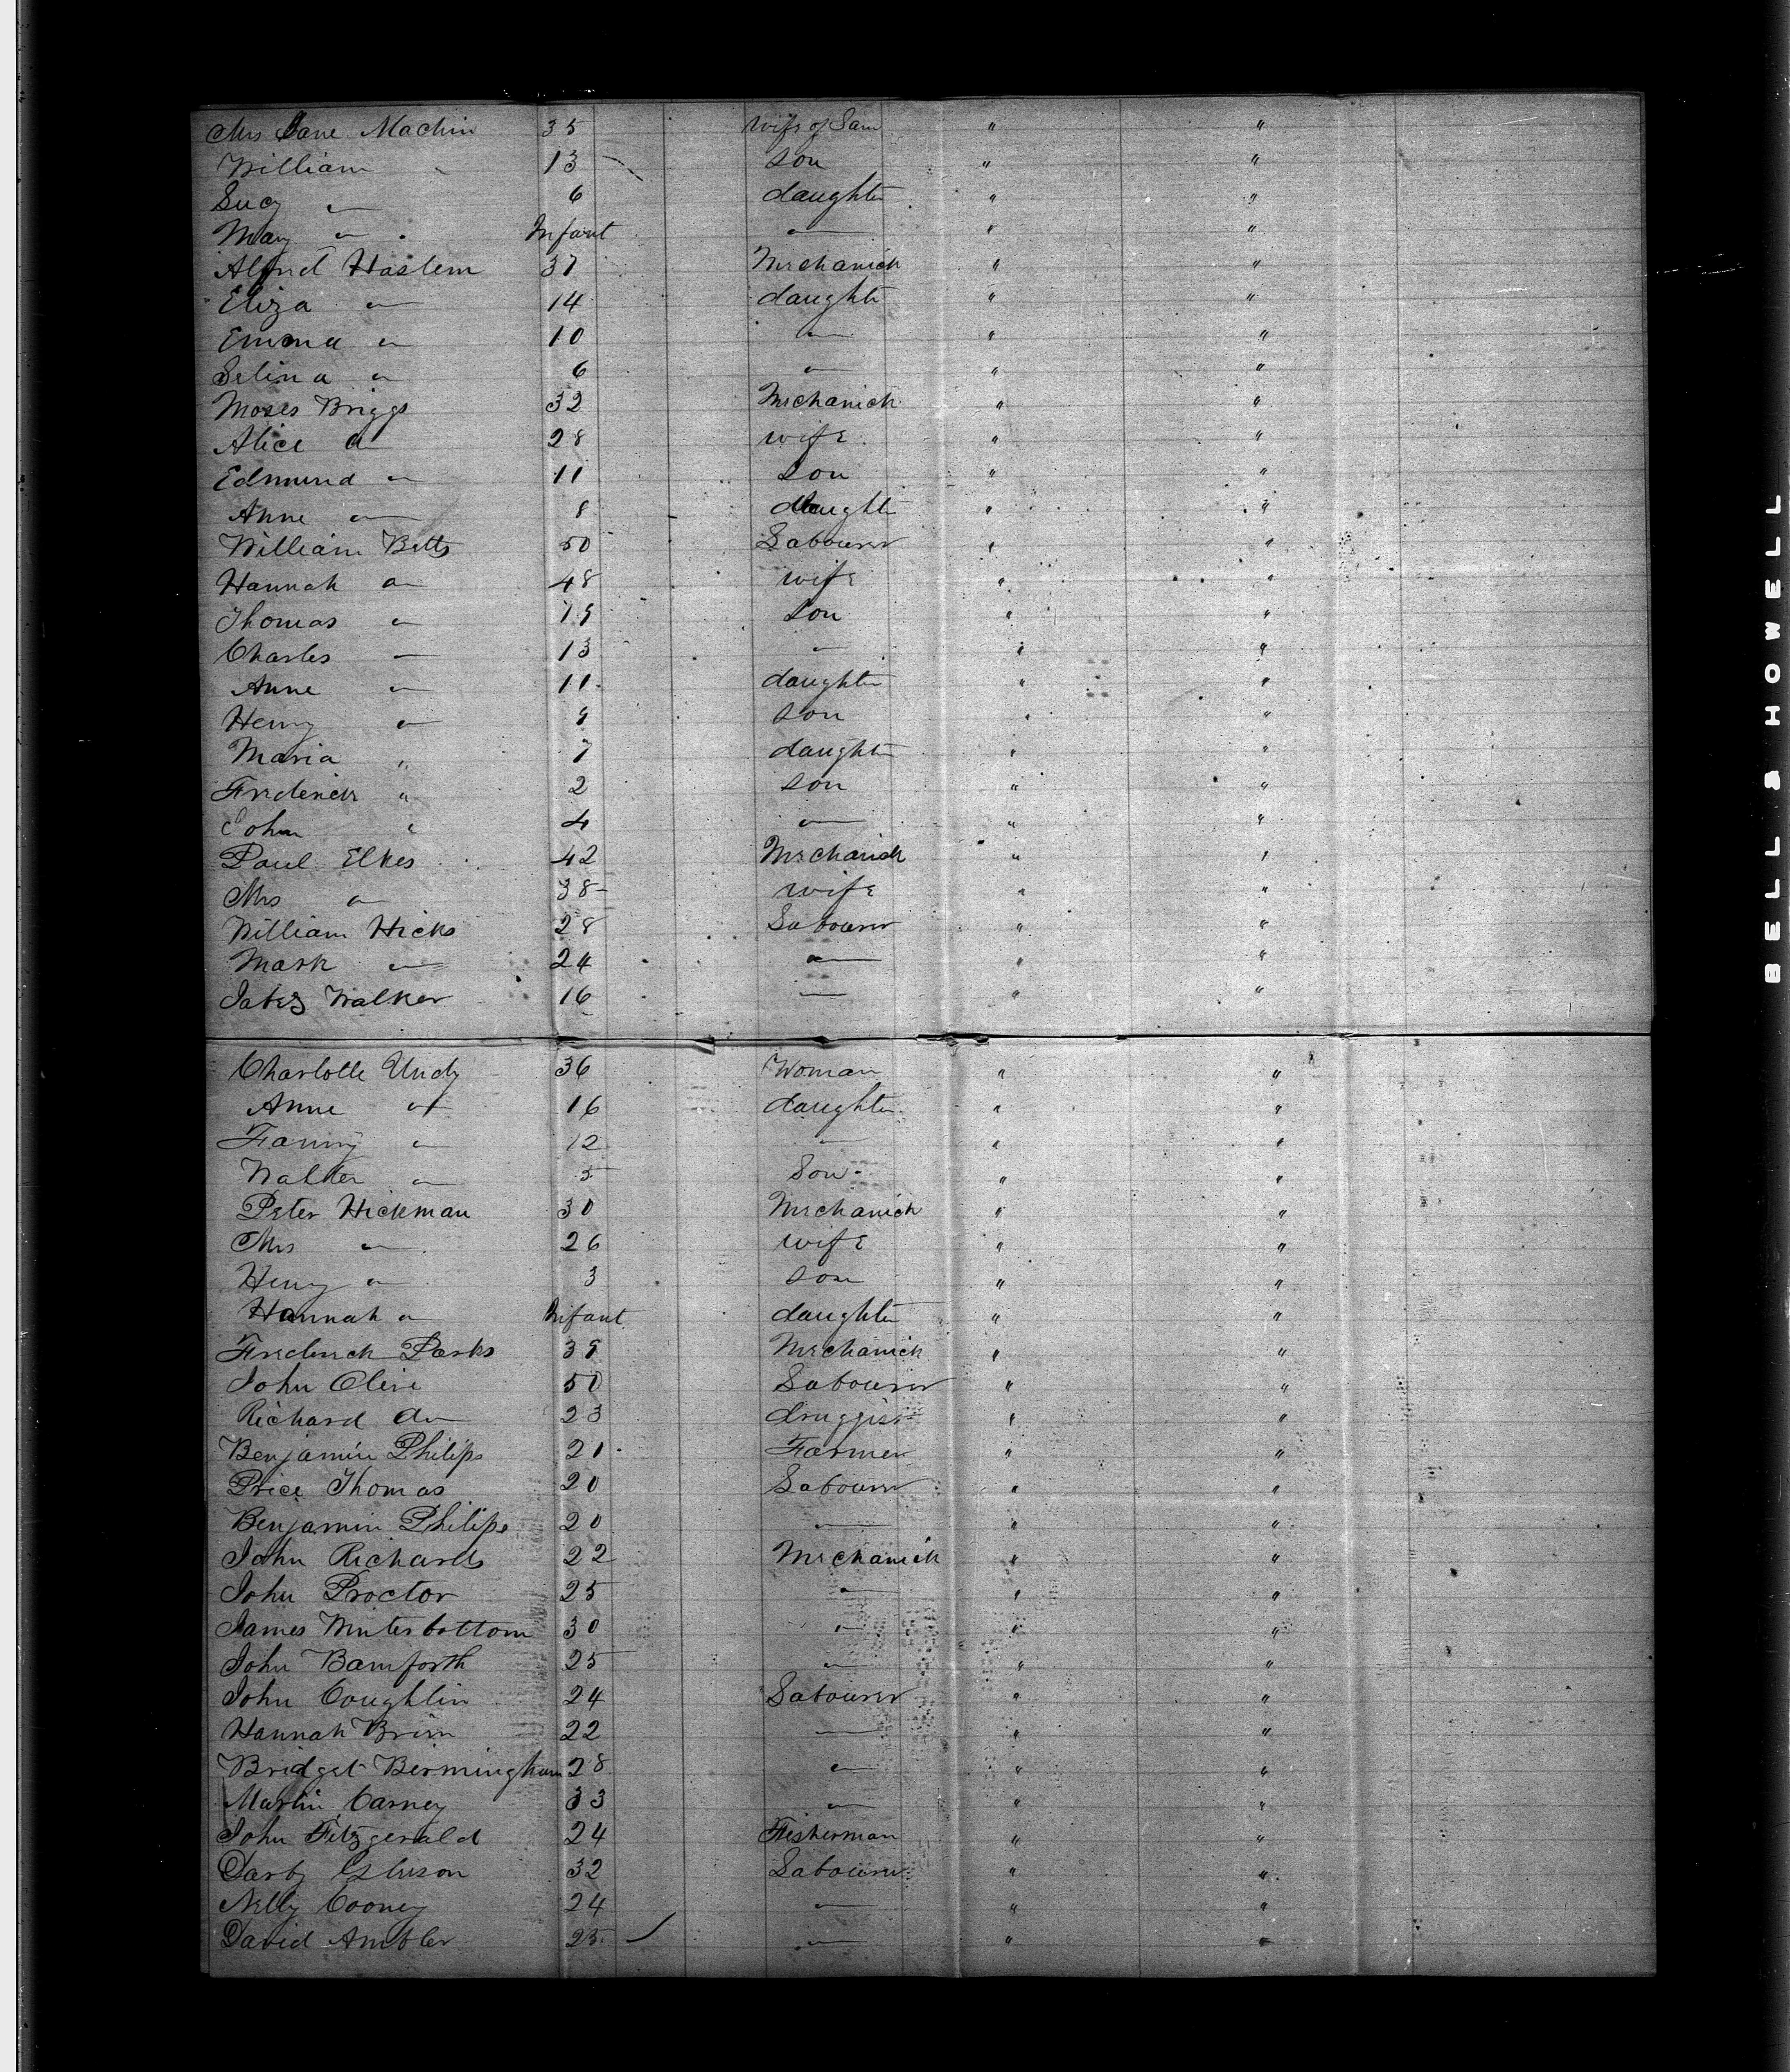 Mrs Jane Machin 35 wife of Sam " "
William " 13 son " "
Lucy " 6 daughter " "
Mary " Infant " " "
Alfred Haslem 37 Mechanick " "
Eliza " 14 daughter " "
Emma " 10 " " "
Selina " 6 " " "
Moses Briggs 32 Mechanick " "
Alice " 28 wife " "
Edmund " 11 Son " "
Anne " 8 daughter " "
William Betts 50 Labourer " "
Hannah " 48 wife " "
Thomas " 19 Son " "
Charles " 13 " " "
Anne " 11 daughter " "
Henry " 9 son " "
Maria " 7 daughter " "
Frederick " 2 son " "
John " 4 " " "
Paul Elkes 42 Mechanick " "
Mrs " 38 wife " "
William Hicks 28 Labourer " "
Mark " 24 " " "
Jabez Walker 16 " " "
Charlotte Undy 36 Woman " "
Anne " 16 daughter " "
Fanny " 12 " " "
Walter " 5 Son " "
Peter Hickman 30 Mechanick " "
Mrs " 26 wife " "
Henry " 3 son " "
Hannah " Infant daughter " "
Frederick Parks 39 Mechanick " "
John Olive 50 Labourer " "
Richard " 23 druggist " "
Benjamin Philips 21 Farmer " "
Price Thomas 20 Labourer " "
Benjamin Philips 20 " " "
John Richards 22 Mechanick " "
John Proctor 25 " " "
James Winterbottom 30 " " "
John Bamforth 25 " " "
John Coughlin 24 Labourer " "
Hannah 22 " " "
Bridget Bermingham 28 " " "
Martin Carney 33 " " "
John Fitzgerald 24 Fisherman " "
Darby 32 Labourer " "
Nelly Cooney 24 " " "
David Ambler 25 " " "
BELL & HOWELL